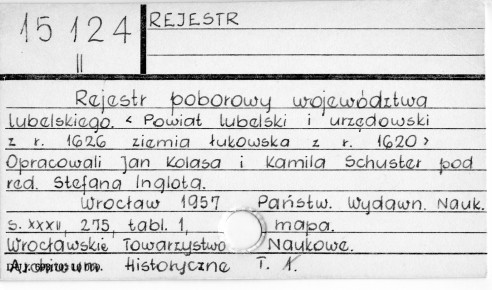 15 124
II
REJESTR
Rejestr poborowy województwa
lubelskiego. < Powiat lubelski i urzędowski
z r. 1626 ziemia łukowska z r. 1620 >
Opracowali Jan Kolasa i Kamila Schuster pod
red. Stefana Inglota.
Wrocław 1957 Państw. Wydawn. Nauk.
s. XXXII, 275, tabl. 1, mapa.
Wrocławskie Towarzystwo Naukowe.
Archiwum Historyczne T. 1.